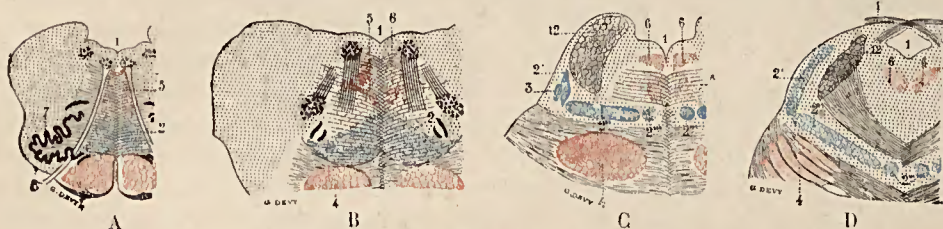 1
5
7
2
8
G. DEVY
4
A
5 1 6
2
G DEVY
4
B
12
6 1 6
2'
3
2''' 2'''
G. DEVY
4
C
1
12
1
2'
6 6
2''
2'''
G. DEVY
4
D